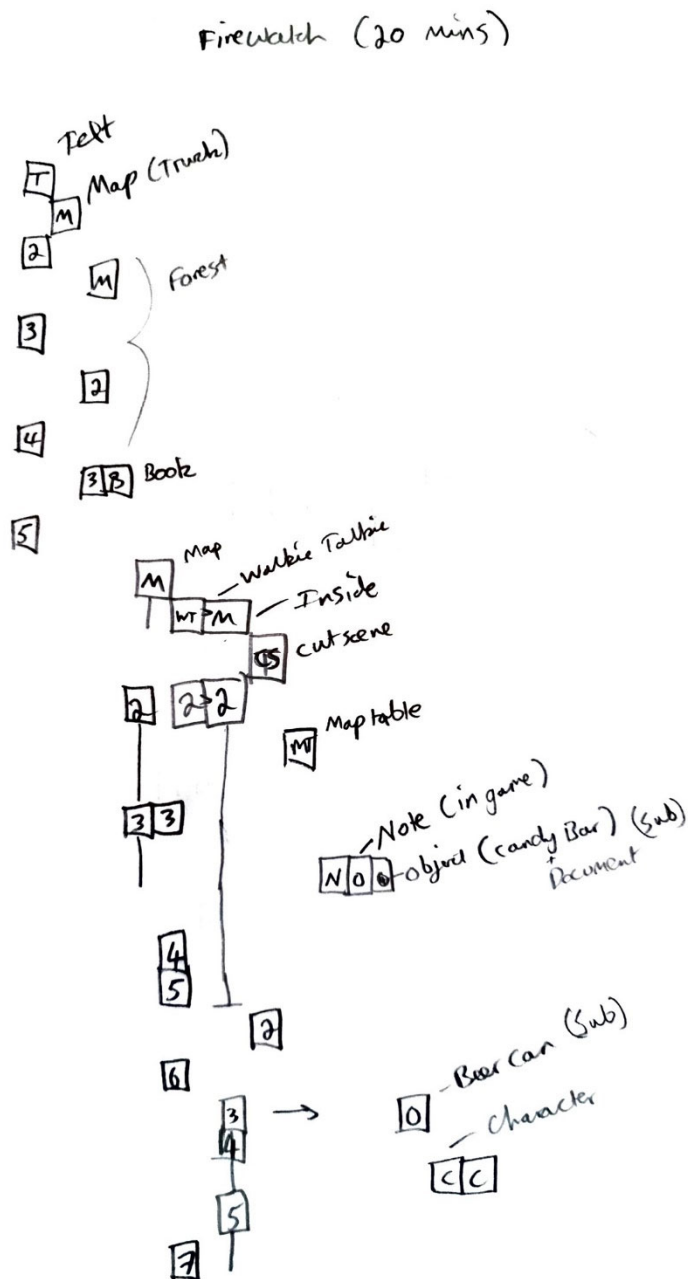 Firewatch (20 mins)
Text
T
Map (Truck)
M
2
M
Forest
3
2
4
3 B Book
5
Map
M
Walkie Talkie
WT > M
Inside
CS
cutscene
2
2 > 2
MT
Map table
3 3
Note (in game)
N O
object (candy Bar) (sub)
+
Document
4
5
2
6
Beer can (sub)
3 →
O
4
Character
C C
5
7